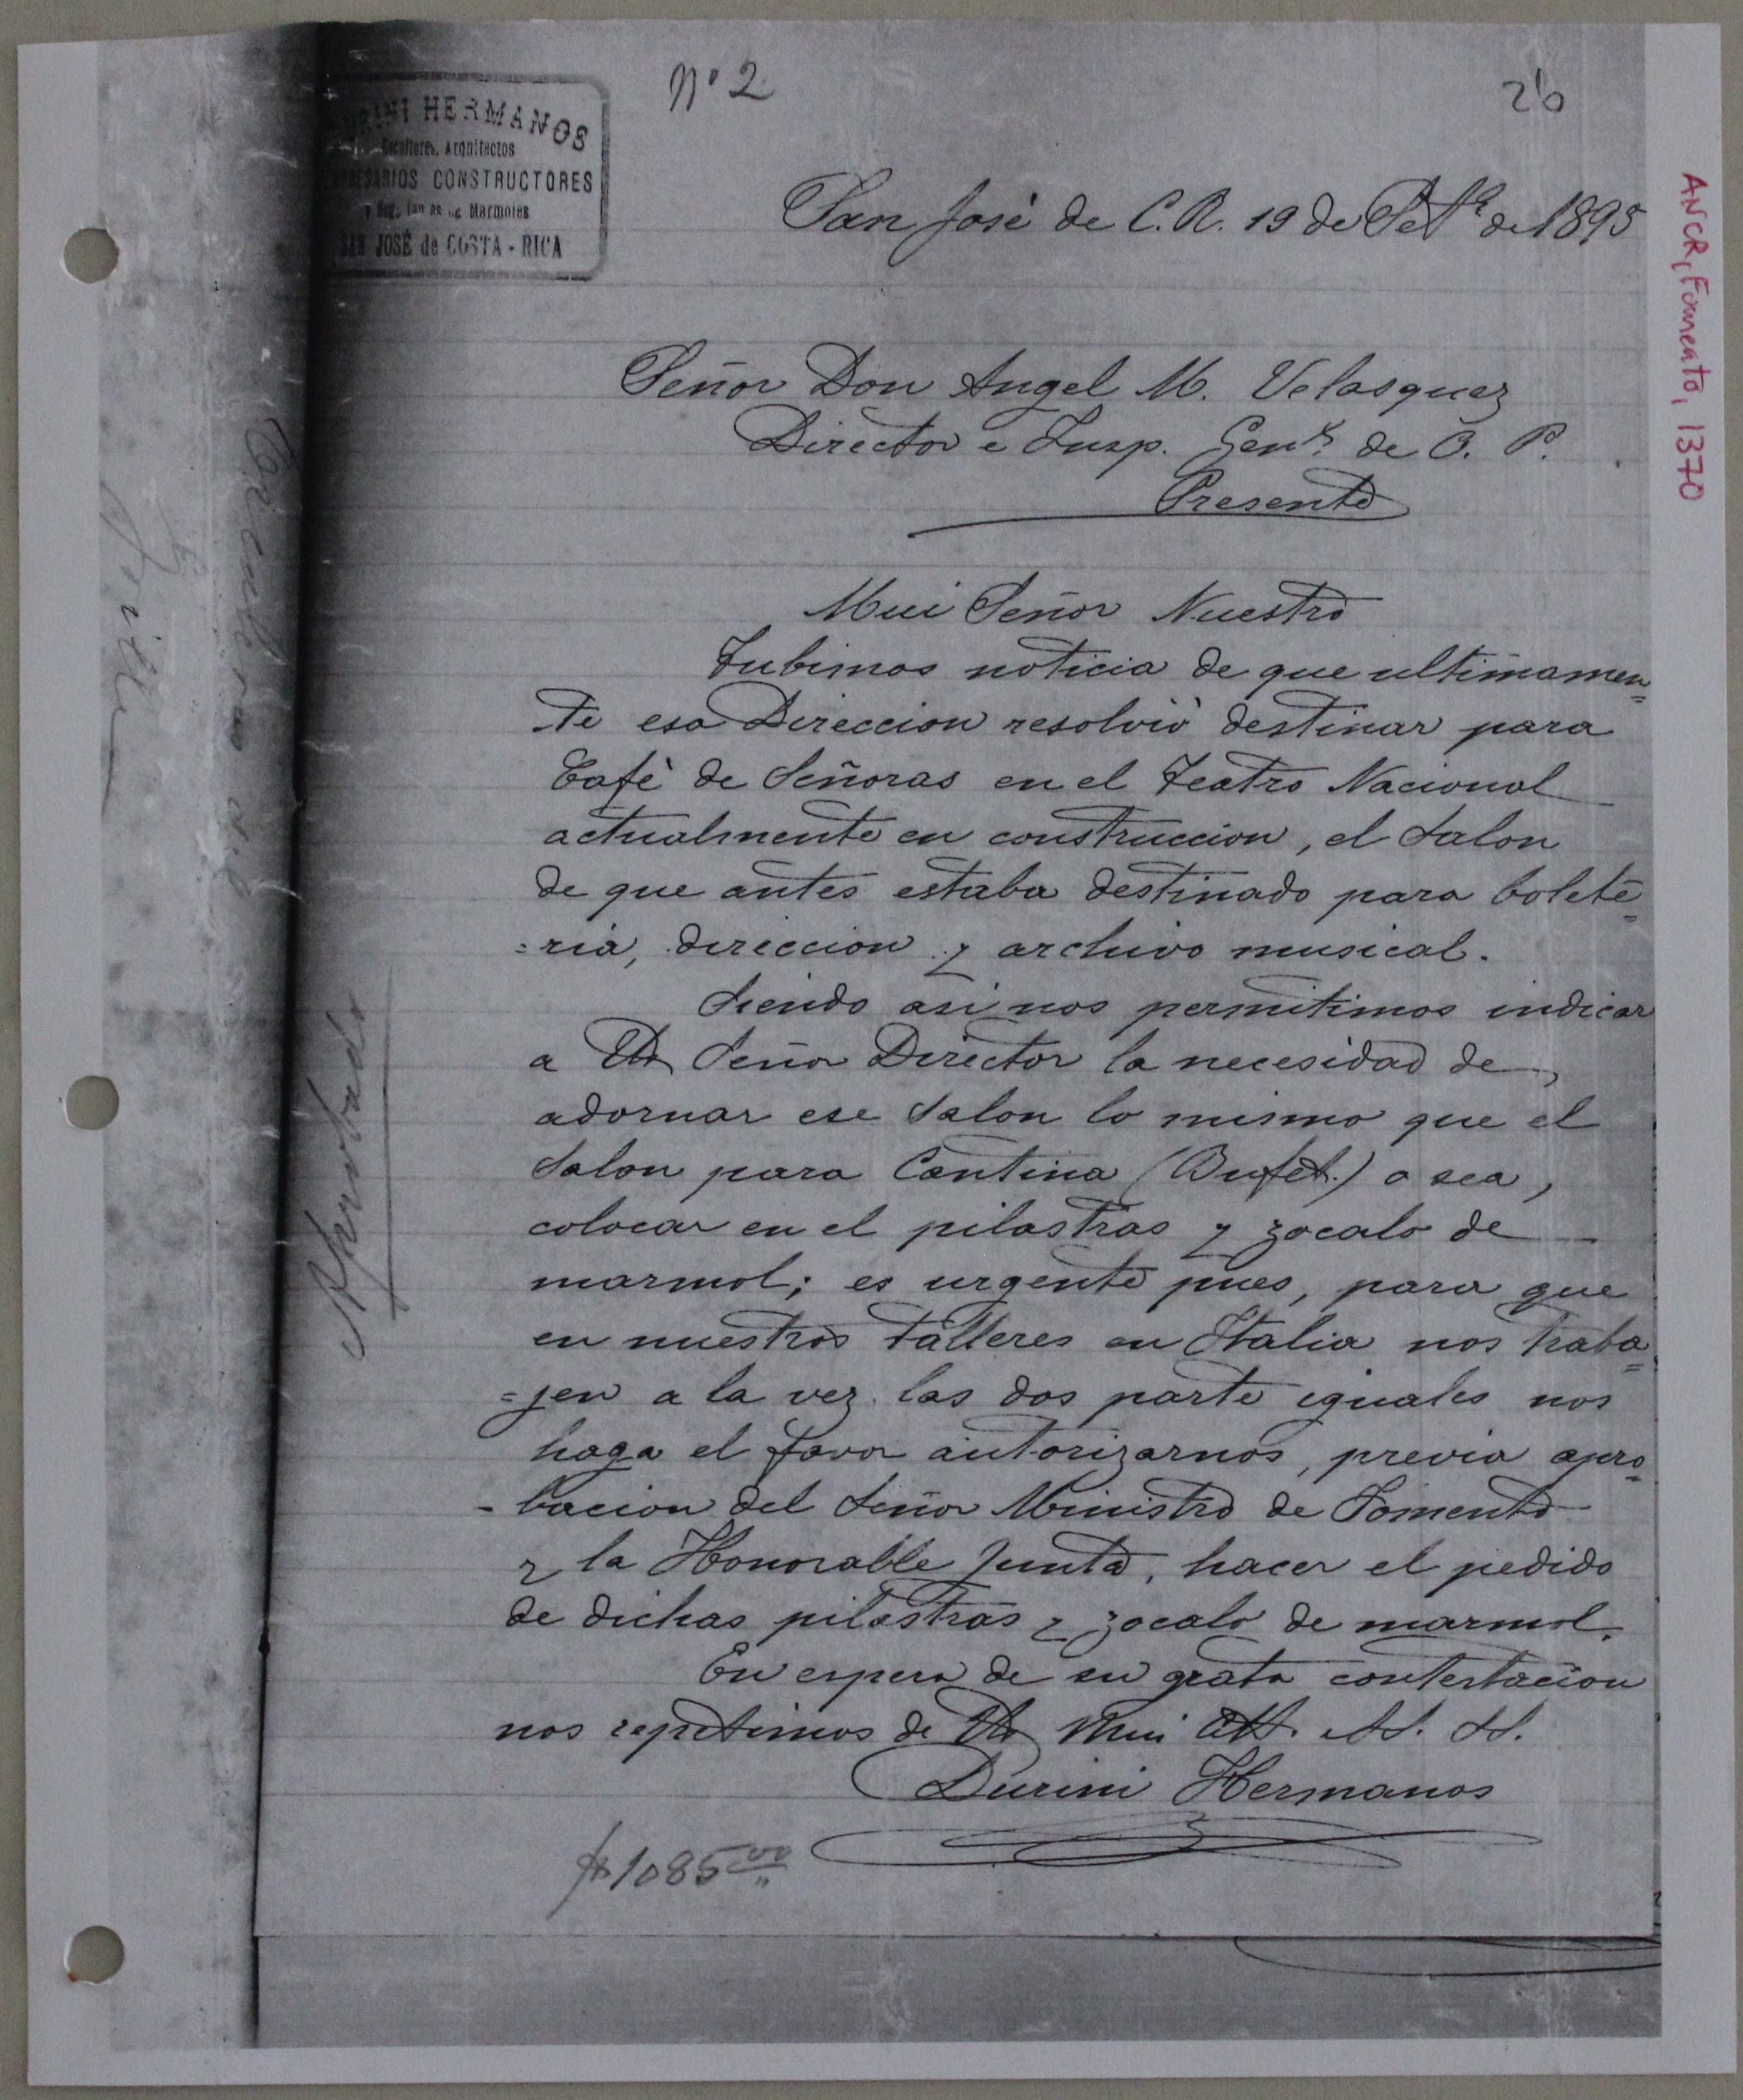 Nº 2
26
HERMANOS
Escultores, Arquitectos
EMPRESARIOS CONSTRUCTORES
Marmoles
SAN JOSÉ de COSTA - RICA
ANCR, Fomento, 1370
San José de C.R. 19 de Setᵉ de 1895
Señor Don Angel M. Velasquez
Director e Insp. Genˡ de O. P.
Presente
Mui Señor Nuestro
Tubimos noticia de que ultimamen=
te esa Direccion resolvió destinar para
Café de Señoras en el Teatro Nacional
actualmente en construccion, el Salon
de que antes estaba destinado para bolete=
=ria, direccion y archivo musical.
Siendo asi nos permitimos indicar
a Ud Señor Director la necesidad de
adornar ese Salon lo mismo que el
Salon para Cantina (Bufet.) o sea,
colocar en el pilastras y zocalo de
marmol; es urgente pues, para que
en nuestros talleres en Italia nos traba=
=jen a la vez las dos parte iguales nos
haga el favor autorizarnos, previa apro=
-bacion del Señor Ministro de Fomento
y la Honorable Junta, hacer el pedido
de dichas pilastras y zocalo de marmol.
En espera de su grata contestacion
nos repetimos de Ud Mui Att. SS. SS.
Durini Hermanos
$1085.00
Aprobado